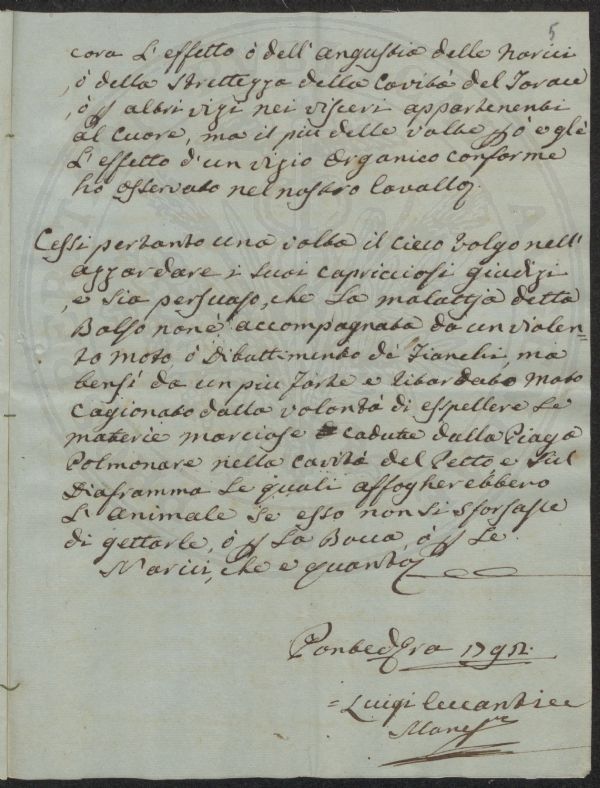 5
cora L'effetto ò dell'angustia delle Narici
, ò della strettezza della Cavità del Torace
, ò p altri vizi nei visceri appartenenti
al Cuore, ma il più delle volte però egl'è
L'effetto d'un vizio organico conforme
hò osservato nel nostro Cavallo.
Cessi pertanto una volta il cieco volgo nell'
azzardare i suoi capricciosi giudizi
, e sia persuaso, che La malattja detta
Bolso non è accompagnata da un violen=
to moto, ò Dibattimento de' Fianchi, ma
bensì da un più forte e ritardato moto
cagionato dalla volontà di espellere Le
materie marciose cadute dalla Piaga
Polmonare nella cavità del Petto e sul
Diaframma Le quali affogherebbero
L'animale se esso non si sforsasse
di gettarle, ò p La Bocca, ò p Le
Narici, che è quanto
Pontedera
= Luigi